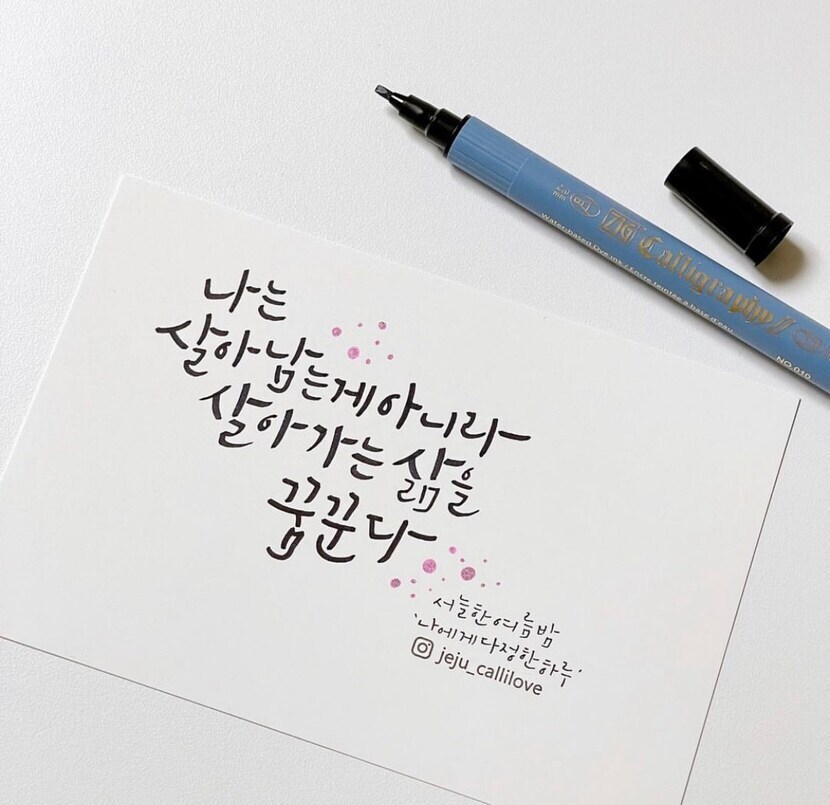 나는
살아남는게아니라
살아가는 삶을
꿈꾼다
서늘한여름밤
'나에게다정한하루'
jeju_callilove
ZIG Calligraphy II
Water-based Dye ink / Encre teintée à base d'eau
NO.010